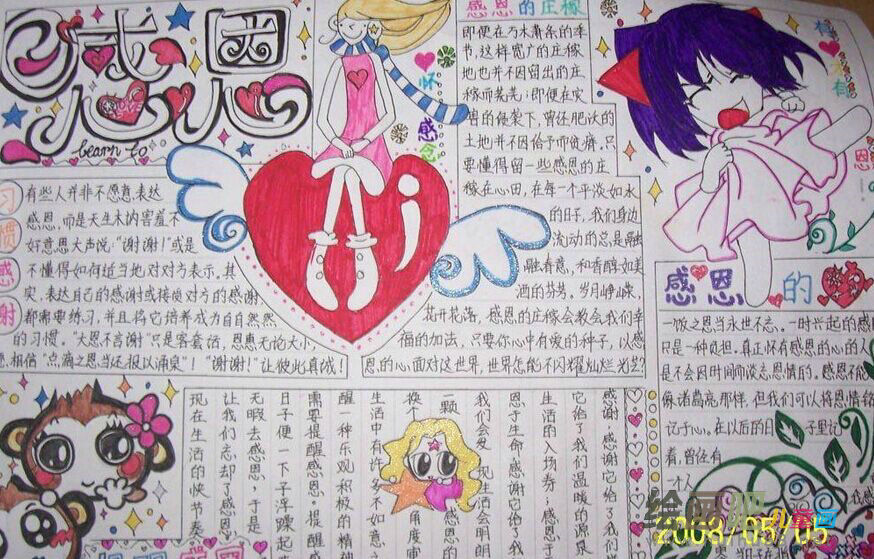 感恩
learn to
习惯感谢
有些人并非不愿意表达
感恩,而是天生木内害羞不
好意思大声说:“谢谢!”或是
不懂得如何适当地对对方表示。其
实,表达自己的感谢或接受对方的感谢,
都需要练习,并且将它培养成为自自然然
的习惯。“大恩不言谢”只是客套话,恩惠无论大小,
相信“点滴之恩当还报以涌泉”!“谢谢!”让彼此真诚!
怀感念
感恩的庄稼
即便在万木萧条的季
节,这样宽广的庄稼
地也并不因留出的庄
稼而荒芜;即便在灾
害的侵袭下,曾经肥沃的
土地并不因给予而贫瘠,只
要懂得留一些感恩的庄
稼在心田,在每一个平淡如水
的日子,我们身边
流动的总是融
融春意,和香醇如美
酒的芬芳。岁月峥嵘,
花开花落,感恩的庄稼会教会我们幸
福的加法,只要你心中有爱的种子,以感
恩的心面对这世界,世界怎能不闪耀灿烂光芒?
感恩的
一饭之恩当永世不忘。一时兴起的感
只是一种负担。真正怀有感恩的心的人
是不会因时间而淡忘恩情的。感恩不能
像诸葛亮那样,但我们可以将恩情铭
记于心。在以后的日子里记
着,曾经有
一个人
感谢,感谢它给了我
它给了我们温暖的源泉
生活的入场券,感
恩于生命,感谢它给了我
我们会发现生活会明朗
一颗感恩的
换个角度审
生活中有许多不如意
醒一种乐观积极的精神
需要提醒感恩,提醒感
日子便一下子浮躁起
无暇去感恩,于是
让我们忘却了感恩
现在生活的快节奏
绘画吧
儿童画
2008/05/05